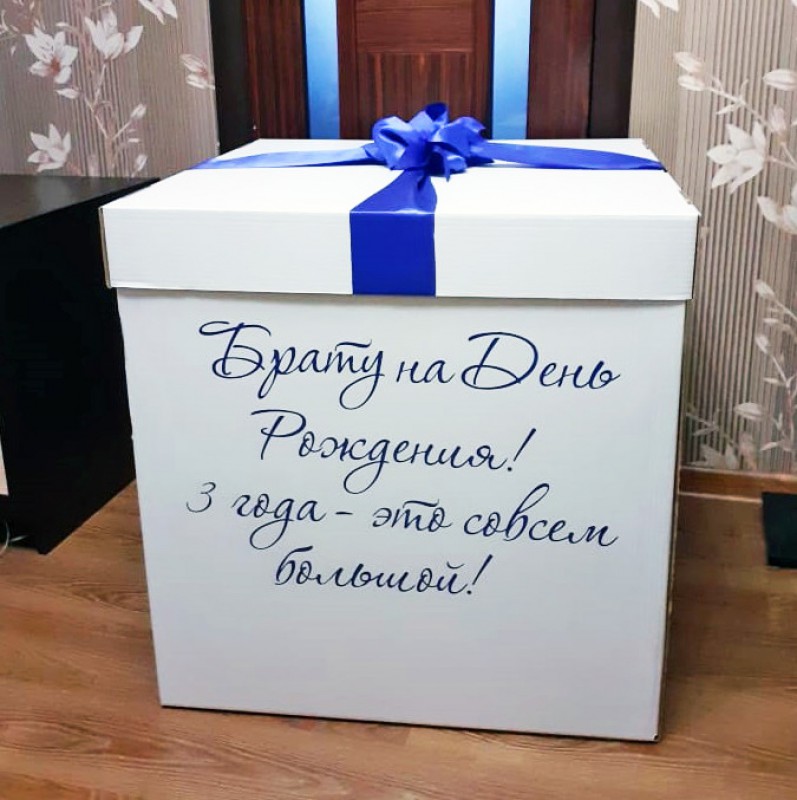 Брату на День
Рождения!
3 года - это совсем
большой!